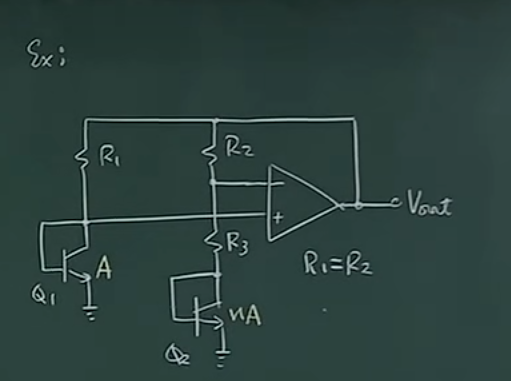 Ex;
R1
R2
−
+
Vout
R3
R1=R2
A
Q1
nA
Q2